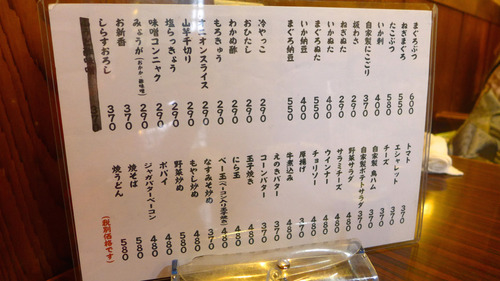 まぐろぶつ 600
ねぎまぐろ 550
たこぶつ 580
いか刺 400
自家製にこごり 370
板わさ 290
ねぎぬた 290
いかぬた 400
まぐろぬた 550
いか納豆 400
まぐろ納豆 550
冷やっこ 290
おひたし 290
わかめ酢 290
もろきゅう 290
オニオンスライス 290
山芋千切り 290
塩らっきょう 290
味噌コンニャク 290
みょうが(おかか・酢味噌) 290
お新香 370
しらすおろし 370
370
トマト 370
エシャレット 370
チーズ 370
自家製 鳥ハム 370
自家製ポテトサラダ 370
野菜サラダ
サラミチーズ 480
ウインナー 480
チョリソー 480
厚揚げ 370
牛煮込み 480
えのきバター 370
コーンバター 370
玉子焼き 480
にら玉 480
ベー玉 480
なすみそ炒め 370
もやし炒め 480
野菜炒め 480
ポパイ 480
ジャガバターベーコン 480
焼そば 580
焼うどん 580
(税別価格です)